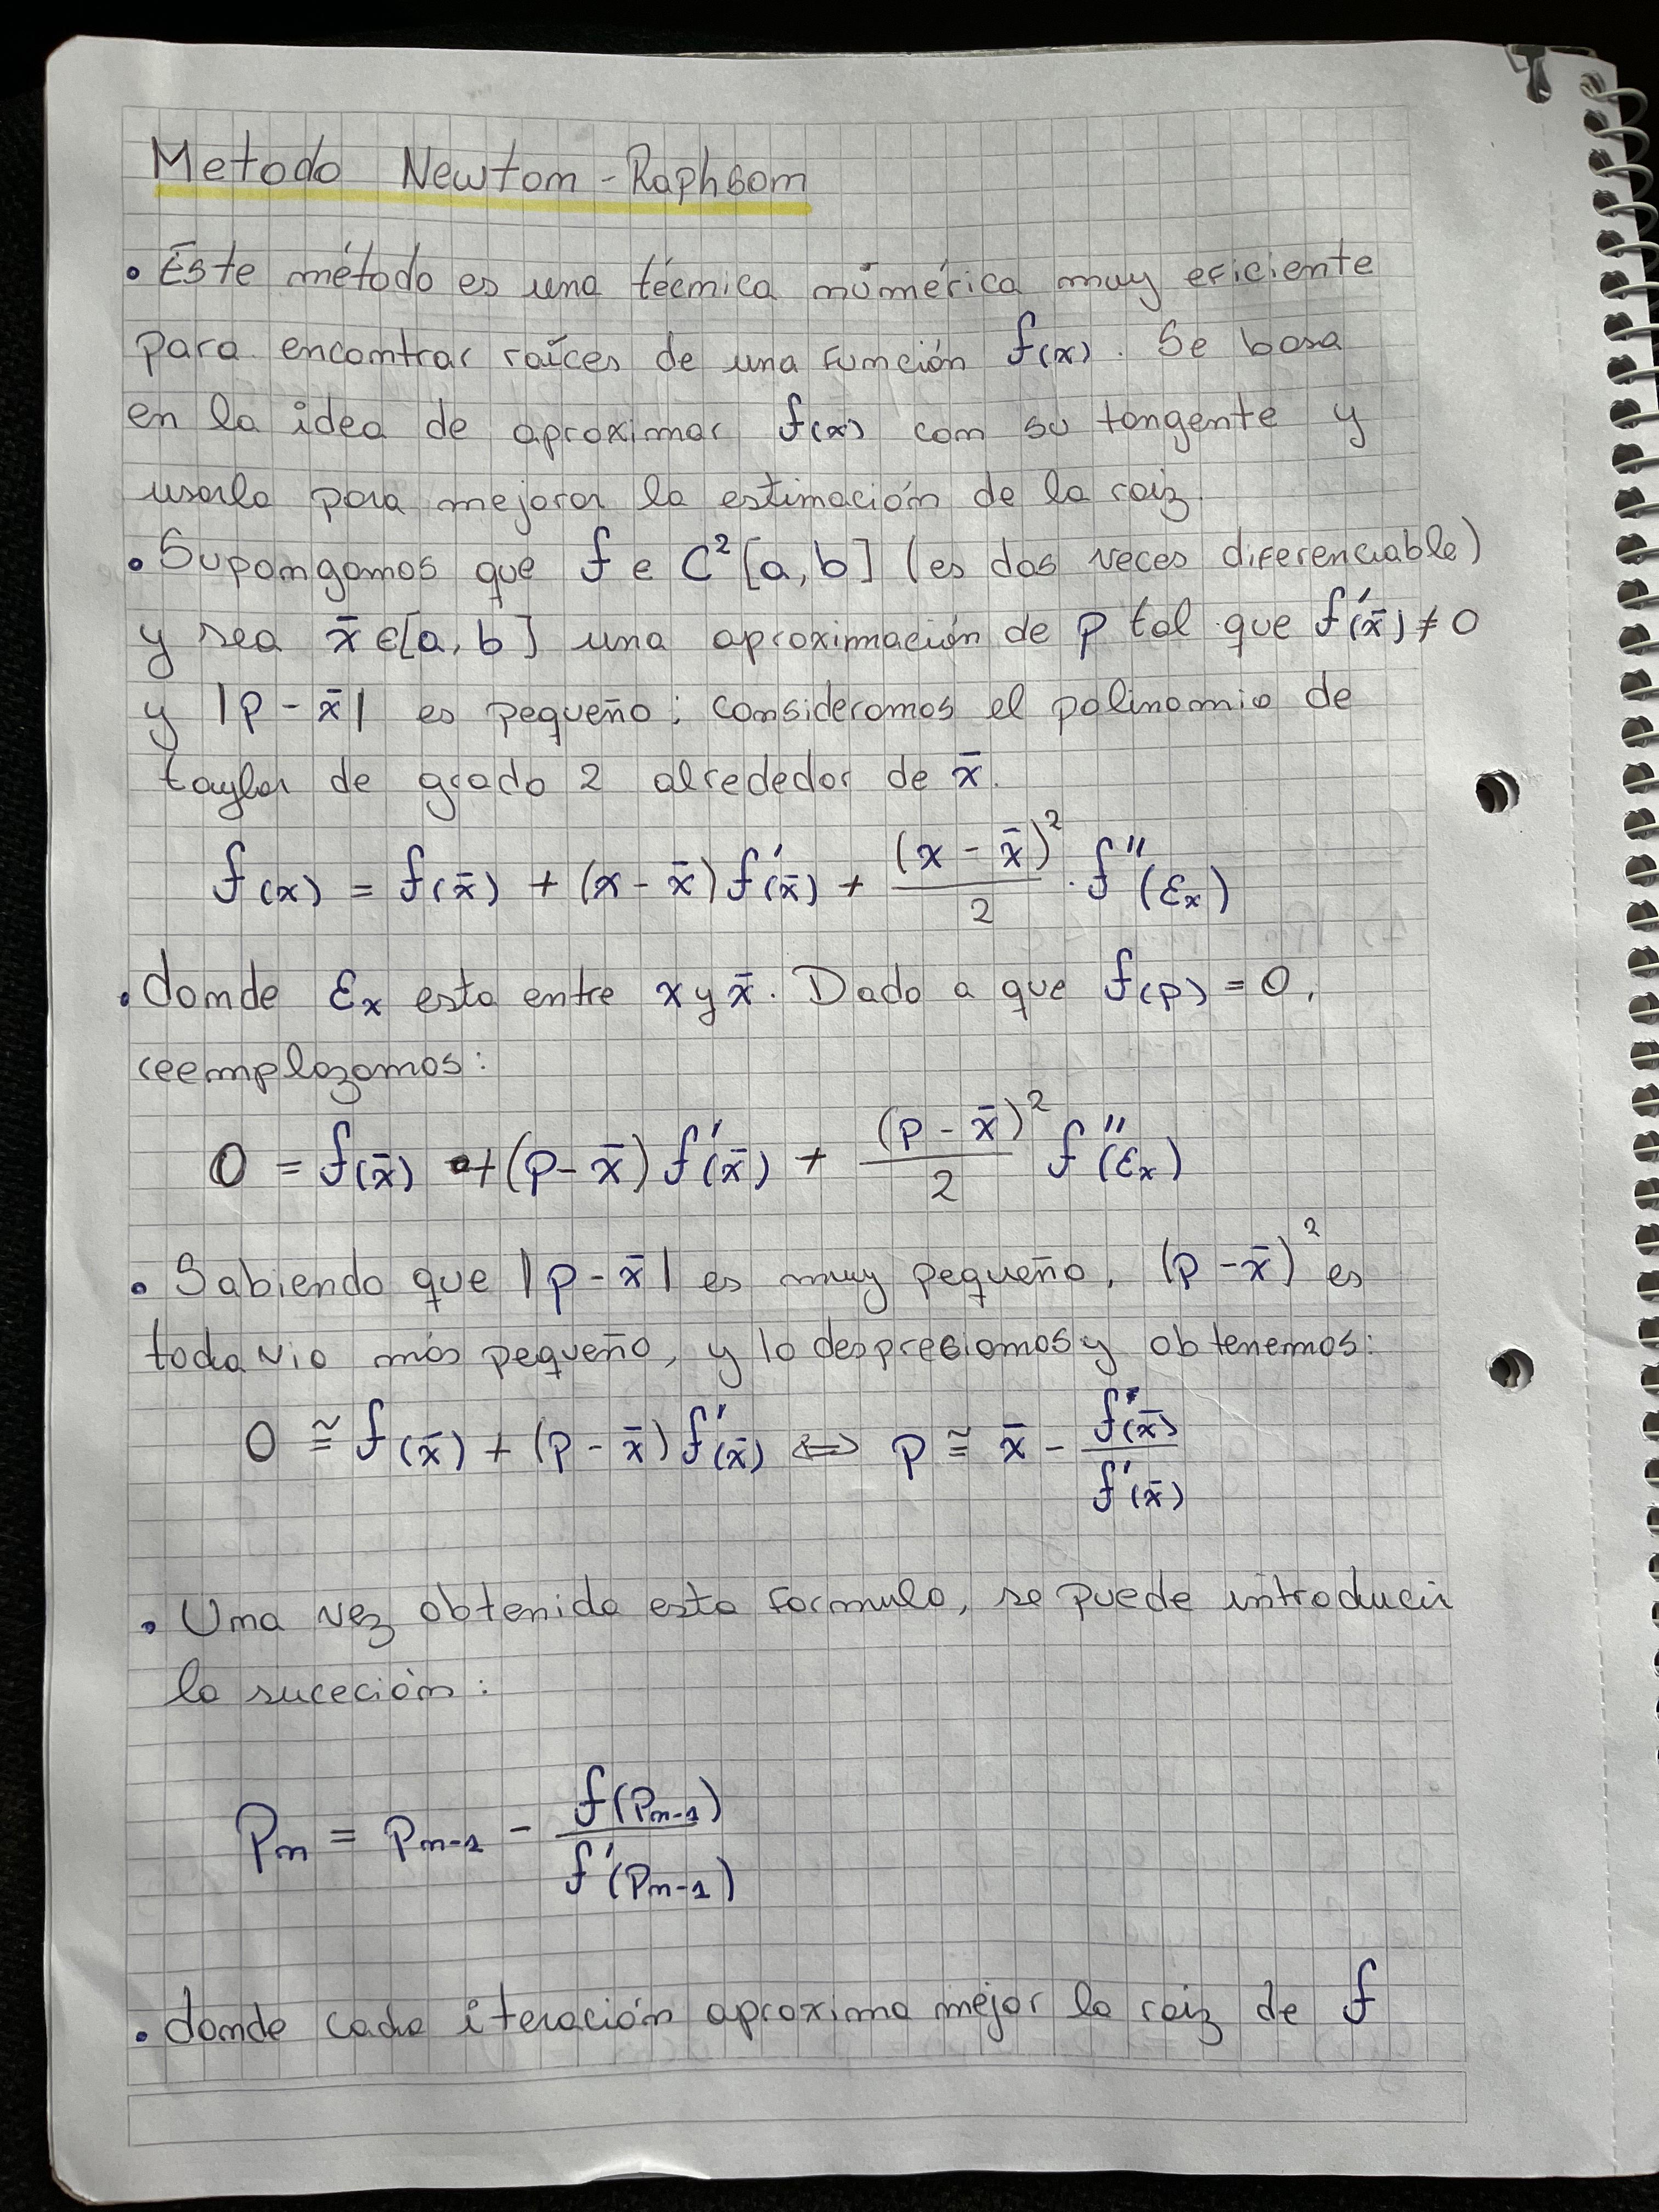 Metodo Newtom - Raphsom
• Este método es una técmica númérica muy eficiemte
para encomtrar raíces de una fumción f(x). Se basa
en la idea de aproximar f(x) com su tangente y
usarla para mejorar la estimación de la raiz.
• Supomgamos que f e C²[a, b] (es dos veces diferenciable)
y sea x̄ ∈ [a, b] una aproximación de p tal que f'(x̄) ≠ 0
y |p - x̄| es pequeño; consideramos el polinomio de
taylor de grado 2 alrededor de x̄.
f(x) = f(x̄) + (x - x̄) f'(x̄) + (x - x̄)²/2 · f''(Ɛₓ)
• domde Ɛₓ esta entre x y x̄. Dado a que f(p) = 0,
reemplazamos:
0 = f(x̄) + (p - x̄) f'(x̄) + (p - x̄)²/2 f''(Ɛₓ)
• Sabiendo que |p - x̄| es muy pequeño, (p - x̄)² es
todavia más pequeño, y lo despreciamos y obtenemos:
0 ≅ f(x̄) + (p - x̄) f'(x̄) ⟺ p ≅ x̄ - f'(x̄)/f'(x̄)
• Uma vez obtenida esta formula, se puede introducir
la suceción:
Pₙ = Pₙ₋₁ - f(Pₙ₋₁)/f'(Pₙ₋₁)
• domde cada iteración aproxima mejor la raiz de f